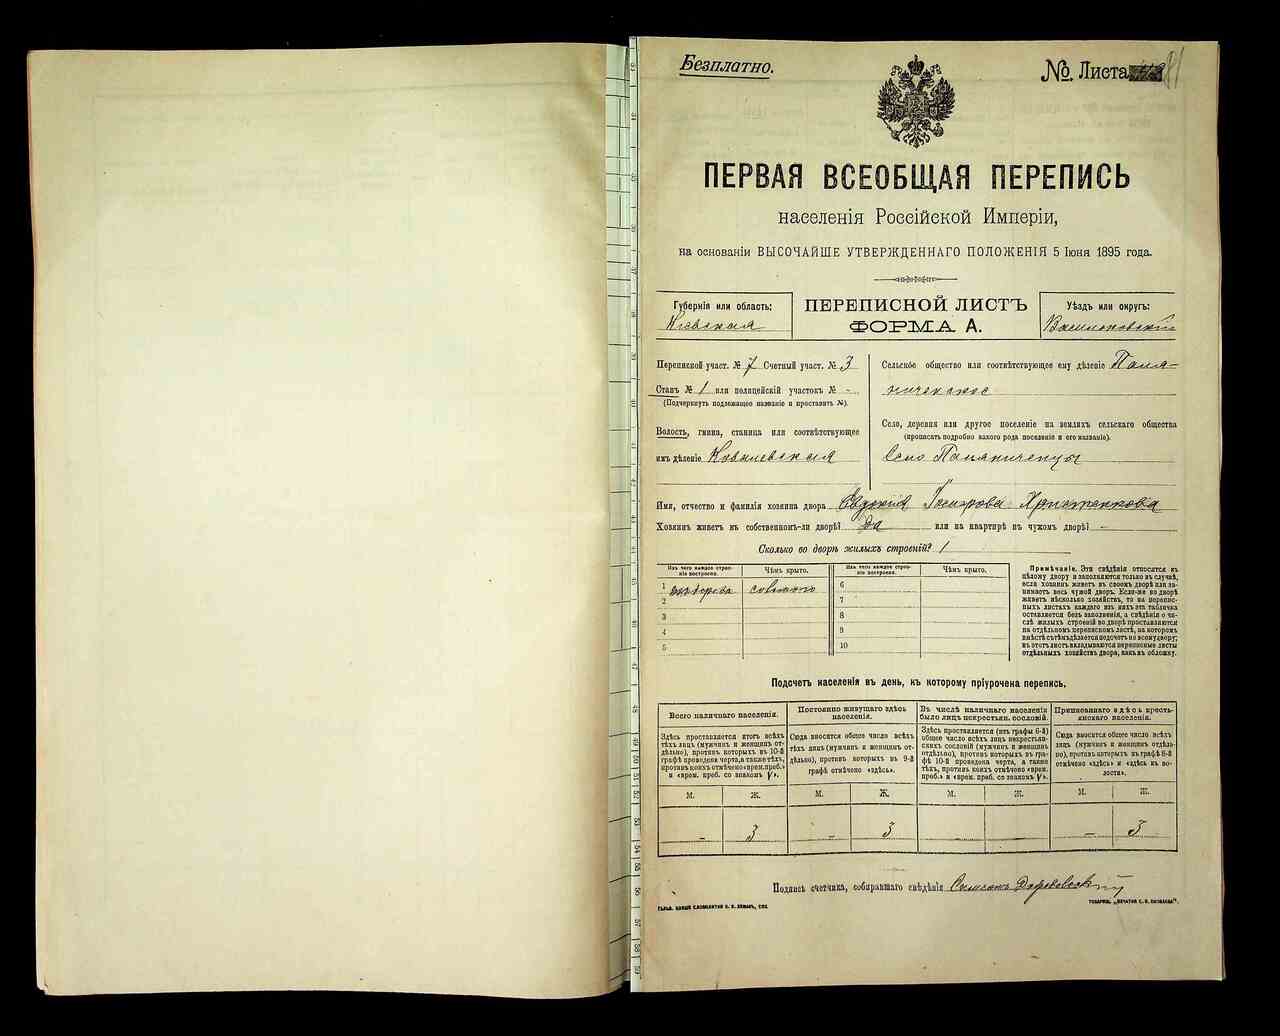 Безплатно.
№ Листа
81
ПЕРВАЯ ВСЕОБЩАЯ ПЕРЕПИСЬ
населенія Россійской Имперіи,
на основаніи ВЫСОЧАЙШЕ УТВЕРЖДЕННАГО ПОЛОЖЕНІЯ 5 Іюня 1895 года.
Губернія или область:
Кіевская
ПЕРЕПИСНОЙ ЛИСТЪ
ФОРМА А.
Уѣздъ или округъ:
Васильковскій
Переписной участ. № 7 Счетный участ. № 3
Станъ № 1 или полицейскій участокъ № -
(Подчеркнуть подлежащее названіе и проставить №).
Волость, гмина, станица или соотвѣтствующее
имъ дѣленіе Ковалевская
Сельское общество или соотвѣтствующее ему дѣленіе Паля-
ниченское
Село, деревня или другое поселеніе на земляхъ сельскаго общества
(прописать подробно какого рода поселеніе и его названіе).
Село Паляниченцы
Имя, отчество и фамилія хозяина двора Евдокія
Хозяинъ живетъ въ собственномъ-ли дворѣ? да или на квартирѣ въ чужомъ дворѣ? -
Сколько во дворѣ жилыхъ строеній? 1
Изъ чего каждое строе-
ніе построено.
Чѣмъ крыто.
1 соломою
2
3
4
5
Изъ чего каждое строе-
ніе построено.
Чѣмъ крыто.
6
7
8
9
10
Примѣчаніе. Эти свѣдѣнія относятся къ
цѣлому двору и заполняются только въ случаѣ,
если хозяинъ живетъ въ своемъ дворѣ или за-
нимаетъ весь чужой дворъ. Если-же во дворѣ
живетъ нѣсколько хозяйствъ, то на перепис-
ныхъ листахъ каждаго изъ нихъ эта табличка
оставляется безъ заполненія, а свѣдѣнія о чи-
слѣ жилыхъ строеній во дворѣ проставляются
на отдѣльномъ переписномъ листѣ, на которомъ
вмѣстѣ съ тѣмъ дѣлается подсчетъ по всему двору;
въ этотъ листъ вкладываются переписные листы
отдѣльныхъ хозяйствъ двора, какъ въ обложку.
Подсчетъ населенія въ день, къ которому пріурочена перепись.
Всего наличнаго населенія.
Здѣсь проставляется итогъ всѣхъ
тѣхъ лицъ (мужчинъ и женщинъ от-
дѣльно), противъ которыхъ въ 10-й
графѣ проведена черта, а также тѣхъ,
противъ коихъ отмѣчено «врем. преб.»
и «врем. преб. со знакомъ V».
Постоянно живущаго здѣсь
населенія.
Сюда вносится общее число всѣхъ
тѣхъ лицъ (мужчинъ и женщинъ от-
дѣльно), противъ которыхъ въ 9-й
графѣ отмѣчено «здѣсь».
Въ числѣ наличнаго населенія
было лицъ некрестьян. сословій.
Здѣсь проставляется (изъ графы 6-й)
общее число всѣхъ лицъ некрестьян-
скихъ сословій (мужчинъ и женщинъ
отдѣльно), противъ которыхъ въ гра-
фѣ 10-й проведена черта, а также
тѣхъ, противъ коихъ отмѣчено «врем.
преб.» и «врем. преб. со знакомъ V».
Приписаннаго здѣсь кресть-
янскаго населенія.
Сюда вносится общее число всѣхъ
лицъ (мужчинъ и женщинъ отдѣль-
но), противъ которыхъ въ графѣ 8-й
отмѣчено «здѣсь» и «здѣсь въ во-
лости».
М. Ж. М. Ж. М. Ж. М. Ж.
- 3 - 3 - 3
Подпись счетчика, собиравшаго свѣдѣнія